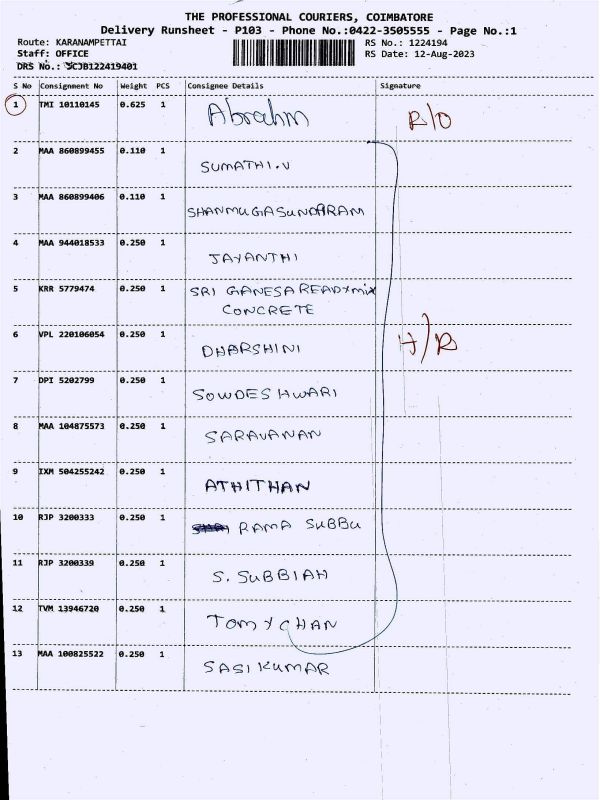 THE PROFESSIONAL COURIERS, COIMBATORE
Delivery Runsheet - P103 - Phone No.:0422-3505555 - Page No.:1
Route: KARANAMPETTAI RS No.: 1224194
Staff: OFFICE RS Date: 12-Aug-2023
DRS No.: SCJB122419401
S No Consignment No Weight PCS Consignee Details Signature
1 TMI 10110145 0.625 1 Abrahm R/O
2 MAA 860899455 0.110 1 SUMATHI.V
3 MAA 860899406 0.110 1 SHANMUGASUNDARAM
4 MAA 944018533 0.250 1 JAYANTHI
5 KRR 5779474 0.250 1 SRI GANESA READYMIX
CONCRETE
6 VPL 220106054 0.250 1 DHARSHINI H/R
7 DPI 5202799 0.250 1 SOWDESHWARI
8 MAA 104875573 0.250 1 SARAVANAN
9 IXM 504255242 0.250 1 ATHITHAN
10 RJP 3200333 0.250 1 RAMA SUBBU
11 RJP 3200339 0.250 1 S. SUBBIAH
12 TVM 13946720 0.250 1 TOMYCHAN
13 MAA 100825522 0.250 1 SASIKUMAR